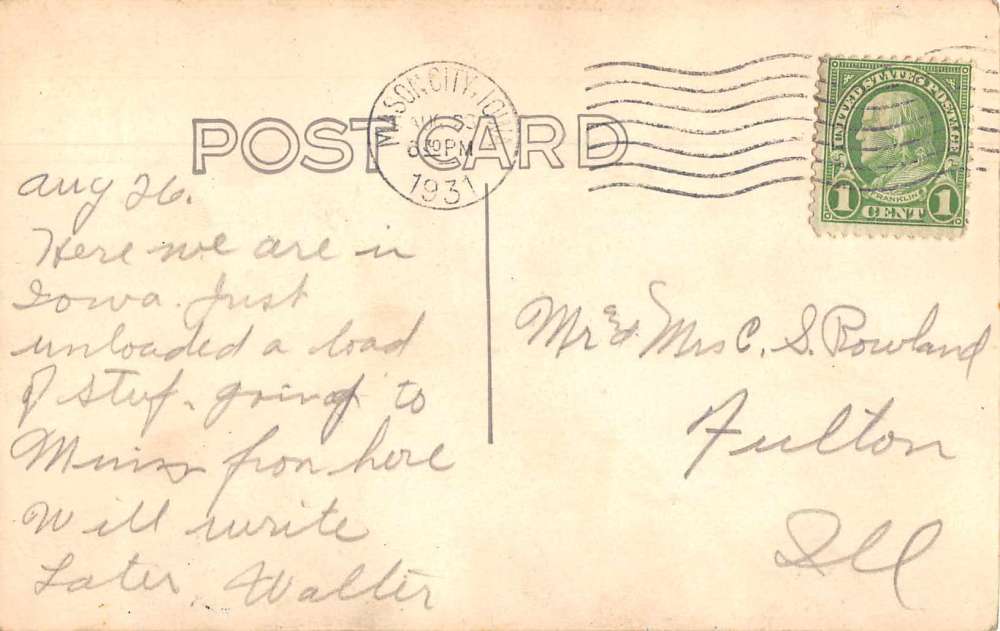 POST CARD
MASON CITY, IOWA
6 PM
1931
UNITED STATES POSTAGE
FRANKLIN
1 CENT 1
Aug 26.
Here we are in
Iowa. Just
unloaded a load
of stuf. going to
Minn from here
Will write
Later, Walter
Mr & Mrs C. S. Rowland
Fulton
Ill